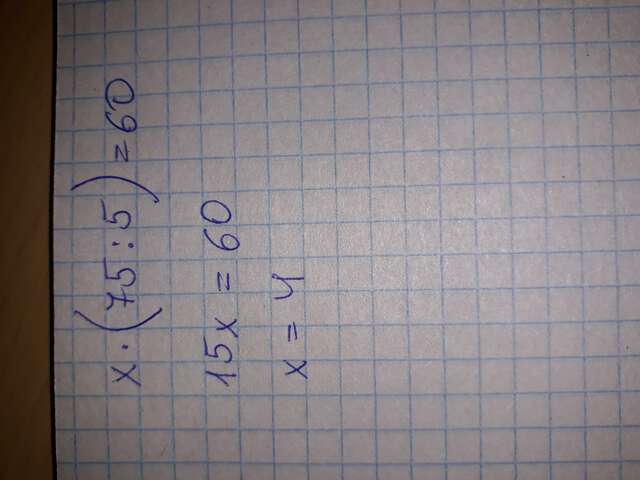 x·(75:5)=60
15x=60
x=4